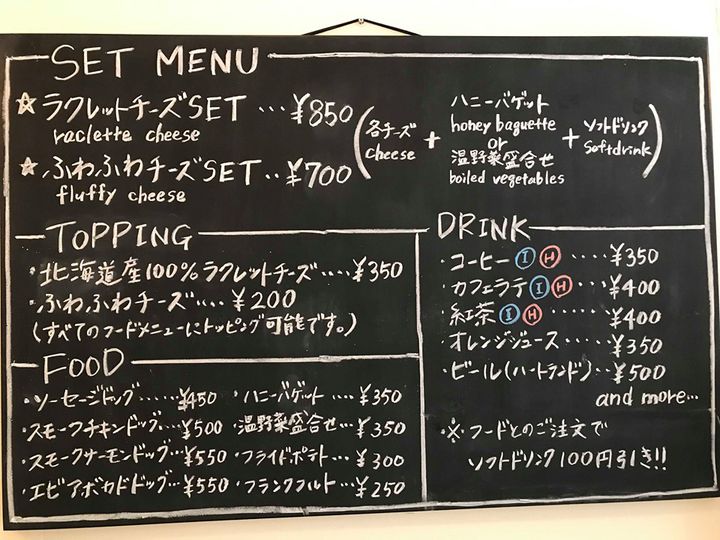 SET MENU
☆ラクレットチーズSET…¥850
raclette cheese
☆ふわふわチーズSET..¥700
fluffy cheese
(各チーズ
cheese
+
ハニーバゲット
honey baguette
or
温野菜盛合せ
boiled vegetables
+
ソフトドリンク
softdrink)
TOPPING
・北海道産100%ラクレットチーズ....¥350
・ふわふわチーズ....¥200
(すべてのフードメニューにトッピング可能です。)
FOOD
・ソーセージドッグ......¥450
・スモークチキンドッグ...¥500
・スモークサーモンドッグ...¥550
・エビアボカドドッグ...¥550
・ハニーバゲット....¥350
・温野菜盛合せ...¥350
・フライドポテト...¥300
・フランクフルト...¥250
DRINK
・コーヒーⒾⒽ.....¥350
・カフェラテⒾⒽ...¥400
・紅茶ⒾⒽ.....¥400
・オレンジジュース....¥350
・ビール(ハートランド)..¥500
and more...
・※フードとのご注文で
ソフトドリンク100円引き!!